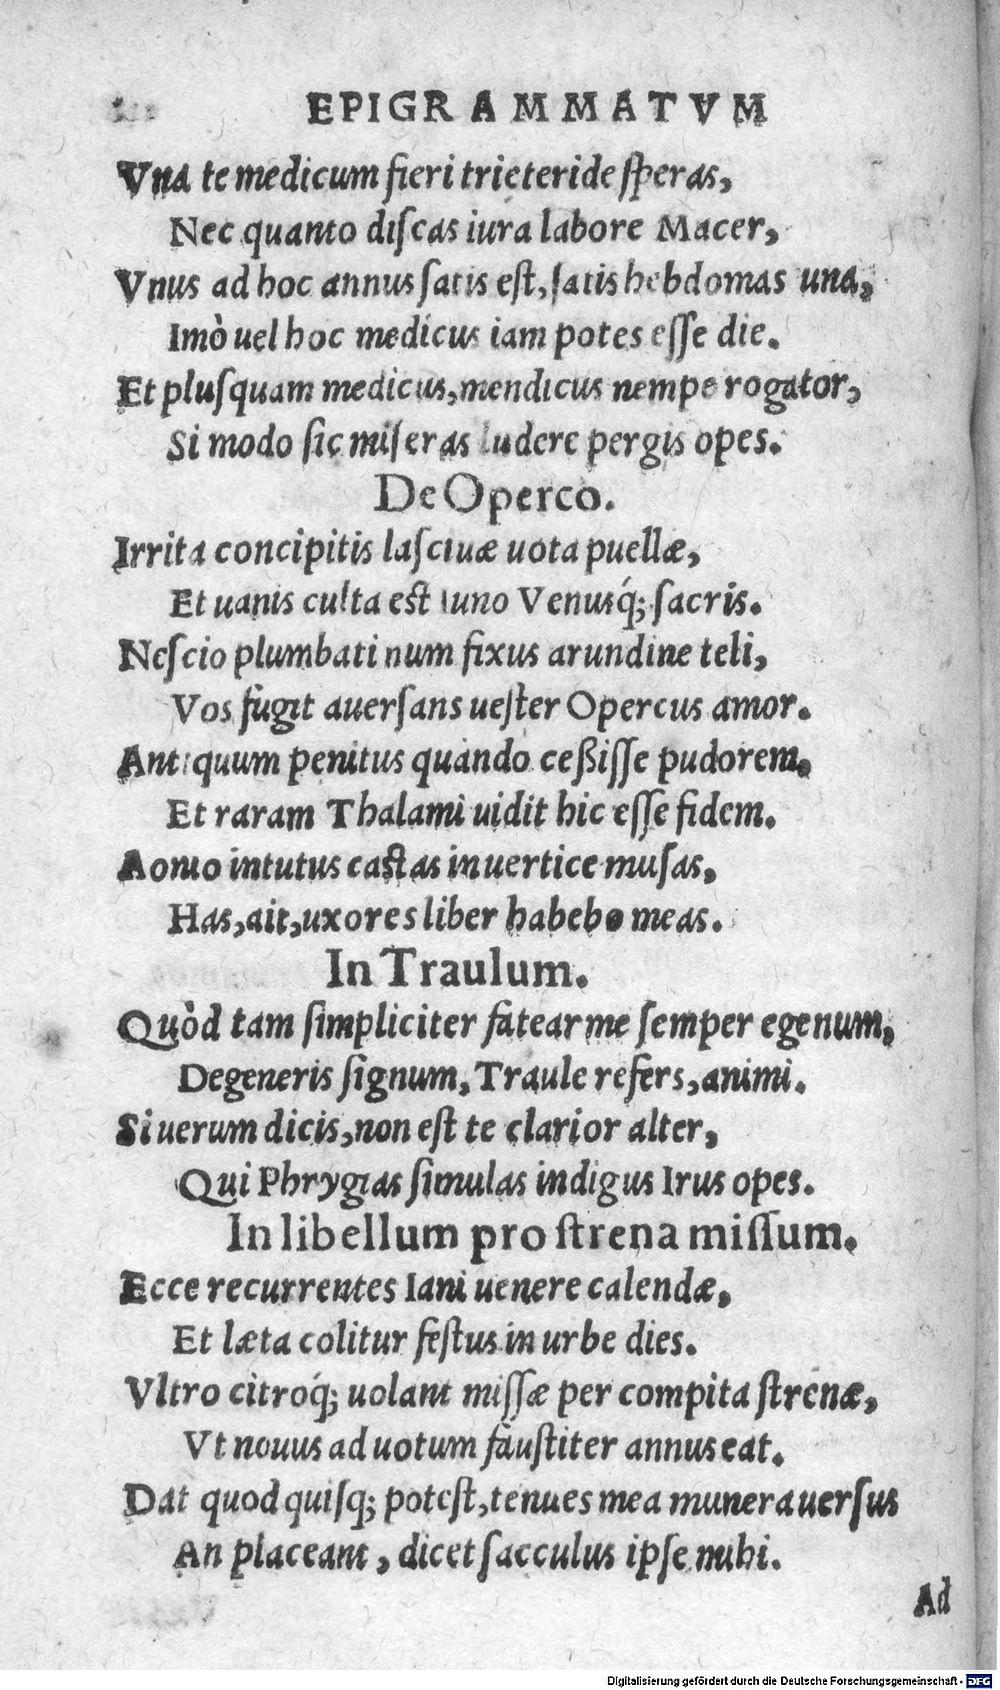 EPIGRAMMATVM
Vna te medicum fieri trieteride ſperas,
Nec quanto diſcas iura labore Macer,
Vnus ad hoc annus ſatis eſt, ſatis hebdomas una,
Imò uel hoc medicus iam potes eſſe die.
Et pluſquam medicus, mendicus nempe rogator,
Si modo ſic miſeras ludere pergis opes.
De Operco.
Irrita concipitis laſciuæ uota puellæ,
Et uanis culta eſt Iuno Venusq́; ſacris.
Neſcio plumbati num fixus arundine teli,
Vos fugit auerſans ueſter Opercus amor.
Antiquum penitus quando ceßiſſe pudorem,
Et raram Thalami uidit hic eſſe fidem.
Aonio intutus caſtas in uertice muſas,
Has, ait, uxores liber habebo meas.
In Traulum.
Quòd tam ſimpliciter fatear me ſemper egenum,
Degeneris ſignum, Traule refers, animi.
Si uerum dicis, non eſt te clarior alter,
Qui Phrygias ſimulas indigus Irus opes.
In libellum pro ſtrena miſſum.
Ecce recurrentes Iani uenere calendæ,
Et læta colitur feſtus in urbe dies.
Vltro citroq́; uolant miſſæ per compita ſtrenæ,
Vt nouus ad uotum fauſtiter annus eat.
Dat quod quiſq; poteſt, tenues mea munera uerſus
An placeant, dicet ſacculus ipſe mihi.
Ad
Digitalisierung gefördert durch die Deutsche Forschungsgemeinschaft - DFG